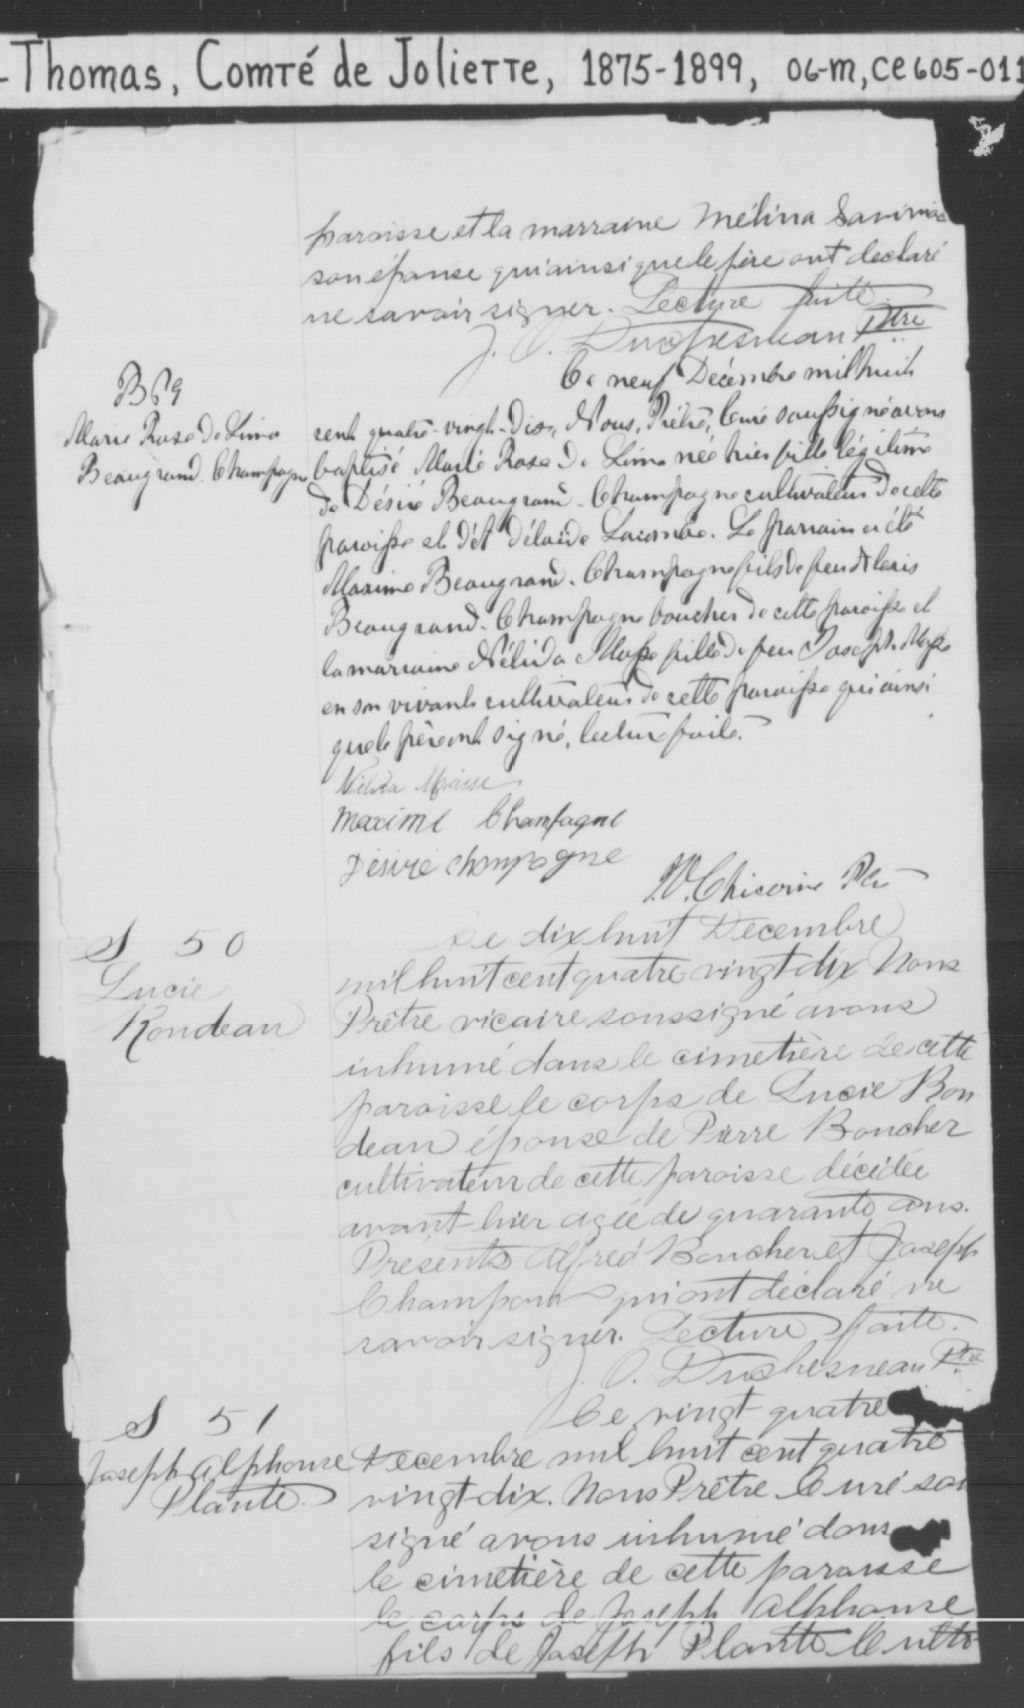 -Thomas, Comté de Joliette, 1875-1899, 06-M, CE605-011
paroisse et la marraine Mélina
son épouse qui ainsi que le père ont declaré
ne savoir signer. Lecture faite.
J. O. Duchesneau Ptre
B69
Marie Rose de Lima
Beaugrand. Champagne
Ce neuf Décembre mil huit
cent quatre-vingt-dix, Nous, Prêtre, Curé soussigné avons
baptisé Marie Rose de Lima née hier fille légitime
de Désiré Beaugrand-Champagne cultivateur de cette
paroisse et d'Adélaïde Lacombe. Le parrain a été
Maxime Beaugrand-Champagne fils de feu Alexis
Beaugrand-Champagne boucher de cette paroisse et
la marraine Nélida Masse fille de feu Joseph Masse
en son vivant cultivateur de cette paroisse qui ainsi
que le père ont signé, lecture faite.
Masse
Maxime Champagne
Désiré Champagne
Ptr
S 50
Lucie
Rondeau
Le dix huit Decembre
mil huit cent quatre vingt dix Nous
Prêtre vicaire soussigné avons
inhumé dans le cimetière de cette
paroisse le corps de Lucie Ron
deau épouse de Pierre Boucher
cultivateur de cette paroisse décédée
avant-hier agée de quarante ans.
Presents Alfred Boucher et Joseph
qui ont déclaré ne
savoir signer. Lecture faite.
J. O. Duchesneau Ptre
S 51
Joseph Alphonse
Plante
Ce vingt quatre
Decembre mil huit cent quatre
vingt-dix. Nous Prêtre Curé sou
signé avons inhumé dans
le cimetière de cette paroisse
le corps de Joseph Alphonse
fils de Joseph Plante Culti